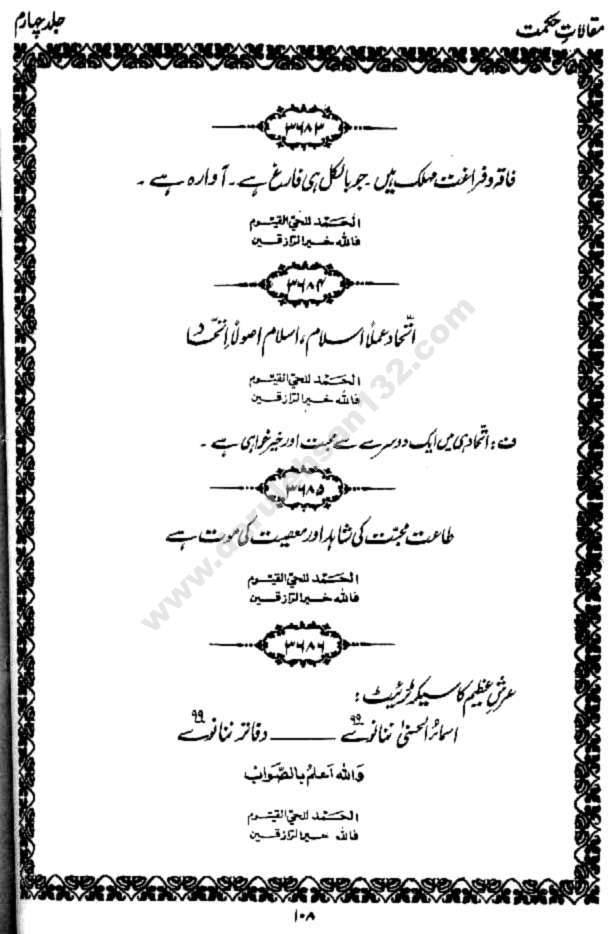 مقالاتِ حکمت
جلد چہارم
۳۶۸۳
فاقہ و فراغت مہلک ہیں۔ جو بالکل ہی فارغ ہے۔ آوارہ ہے۔
الحَمَد للحیّ القیّوم
فاللہ خیرالرازقین
۳۶۸۴
اتّحاد عملاً اسلام، اسلام اصولاً اِتّحاد
الحَمَد للحیّ القیّوم
فاللہ خیرالرازقین
ف: اتحاد ہی میں ایک دوسرے سے محبت اور خیرخواہی ہے۔
۳۶۸۵
طاعت محبّت کی شاہد اور معصیت کی موت ہے
الحَمَد للحیّ القیّوم
فاللہ خیرالرازقین
۳۶۸۶
عرشِ عظیم کا سیکرٹریٹ:
اسمائرالحسنیٰ ننانوے ۹۹ ـــــــ دفاتر ننانوے ۹۹
وَاللہ اَعلمُ بالصَّوابْ
الحَمَد للحیّ القیّوم
فاللہ خیرالرازقین
۱۰۸
www.darulehsan132.com